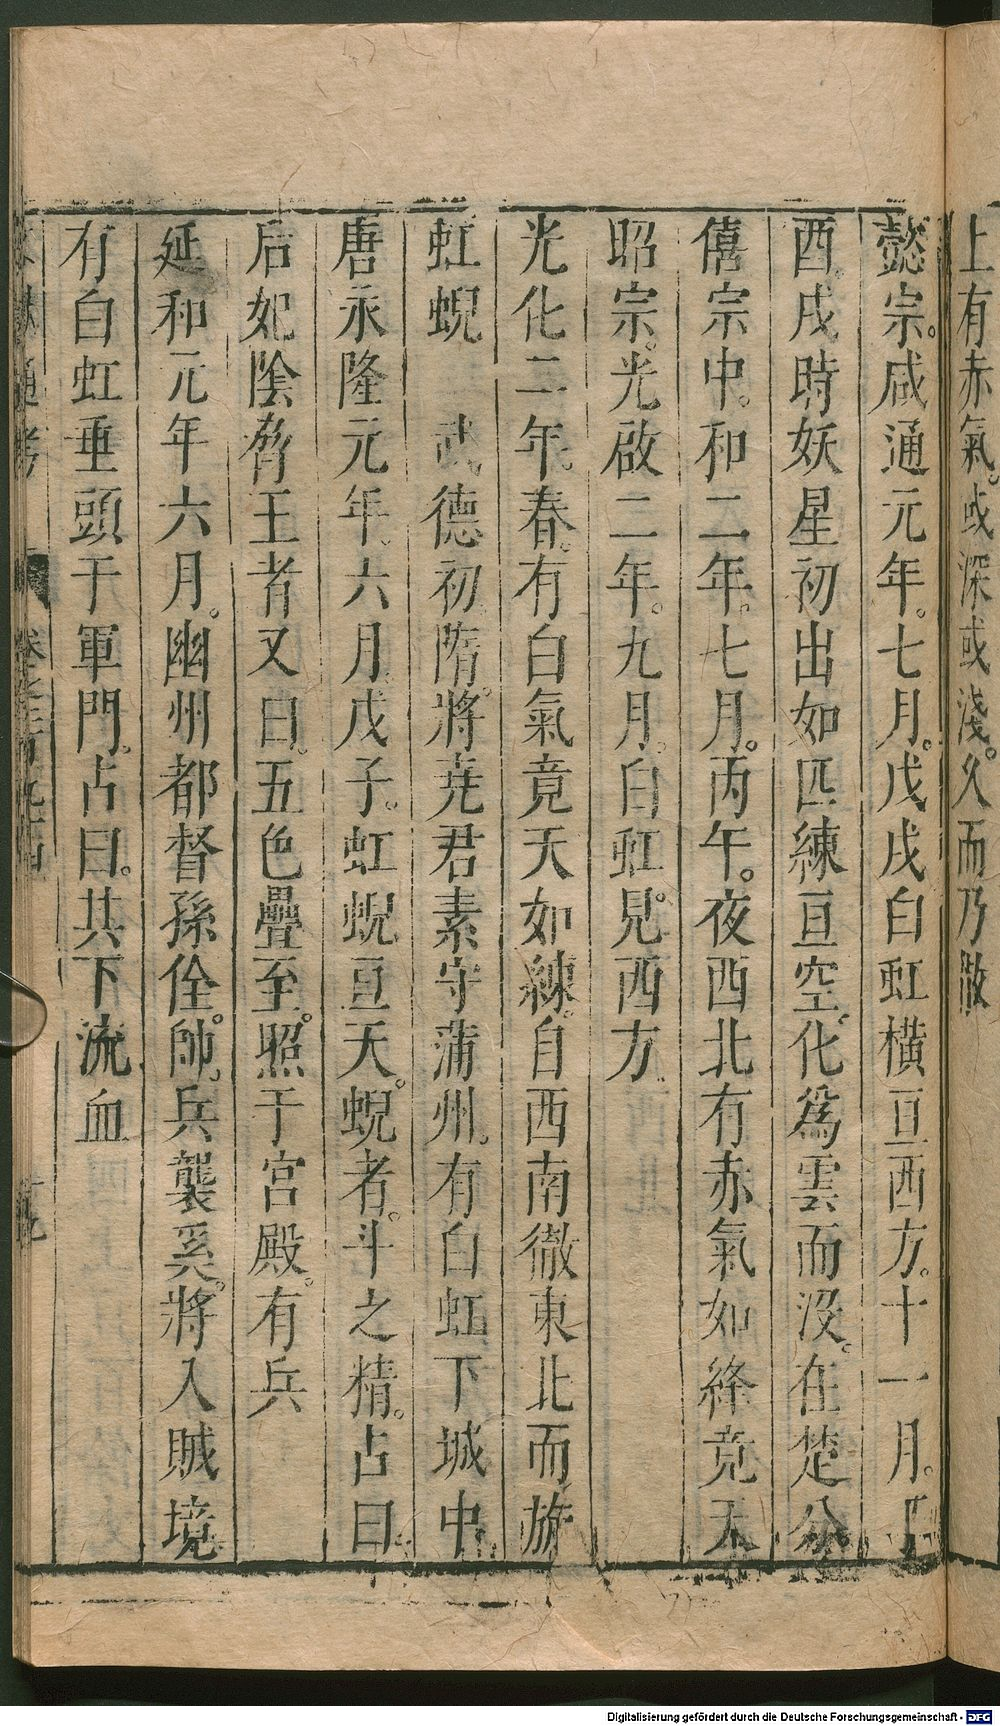 上有赤氣。或深或淺。久而乃散
懿宗。咸通元年。七月。戊戌白虹橫亘西方。十一月。丁
酉。戌時妖星初出如匹練亘空。化為雲而沒。在楚分
僖宗中。和二年。七月。丙午。夜西北有赤氣如絳竟天
昭宗。光啟二年。九月。白虹見。西方
光化二年。春。有白氣竟天如練。自西南徹東北而旅
虹蜺　武德初隋。將堯君素守蒲州。有白虹下城中
唐永隆元年。六月戊子。虹蜺亘天。蜺者。斗之精。占曰
后妃陰脅王者又曰。五色疊至。照于宮殿。有兵
延和元年六月。幽州都督孫佺。帥。兵襲奚。將入賊境
有白虹垂頭于軍門。占曰。其下流血
通考
Digitalisierung gefördert durch die Deutsche Forschungsgemeinschaft - DFG